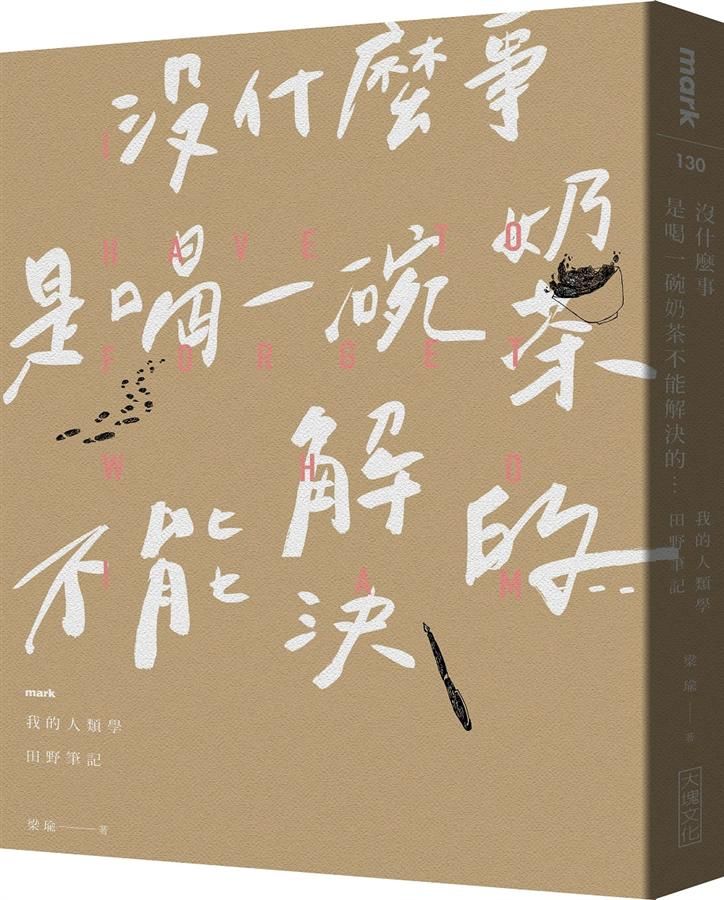 沒什麼事
是喝一碗奶茶
不能解決的...
I
HAVE TO
FORGET
WHO
I AM
mark
我的人類學
田野筆記
梁瑜——著
mark
130
沒什麼事
是喝一碗奶茶不能解決的…
我的人類學
田野筆記
梁瑜——著
大塊文化